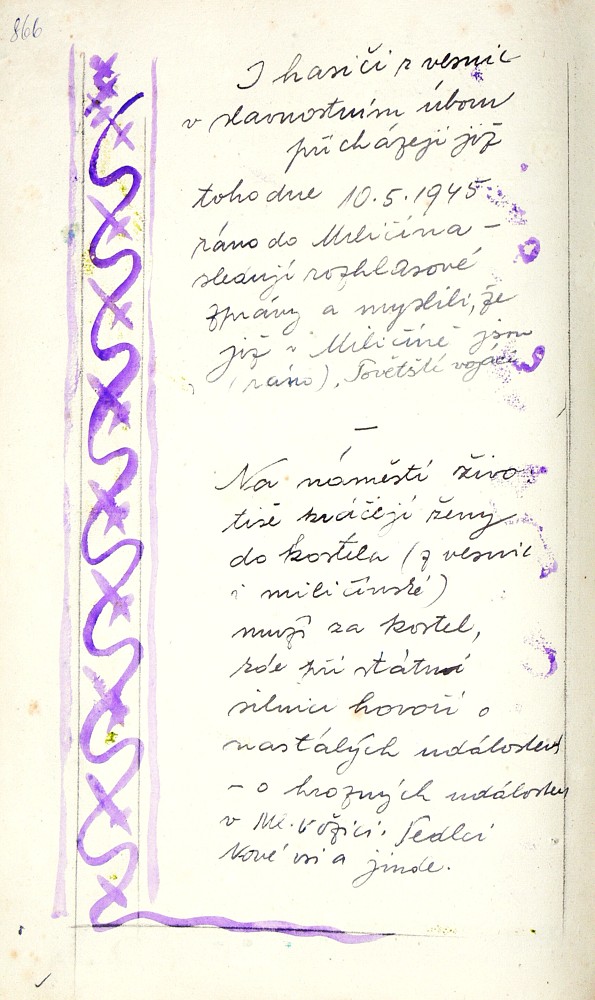 866
I hasiči z vesnic
v slavnostním úboru
přicházejí již
toho dne 10.5.1945
ráno do Miličína –
sledují rozhlasové
zprávy a myslili, že
již v Miličíně jsou
(ráno), Sovětští vojáci
–
Na náměstí živo,
tiše kráčejí ženy
do kostela (z vesnic
i miličínské)
muži za kostel,
kde při státní
silnici hovoří o
nastálých událostech
– o hrozných událostech
v Ml. Vožici, Sedlci
Nové vsi a jinde.